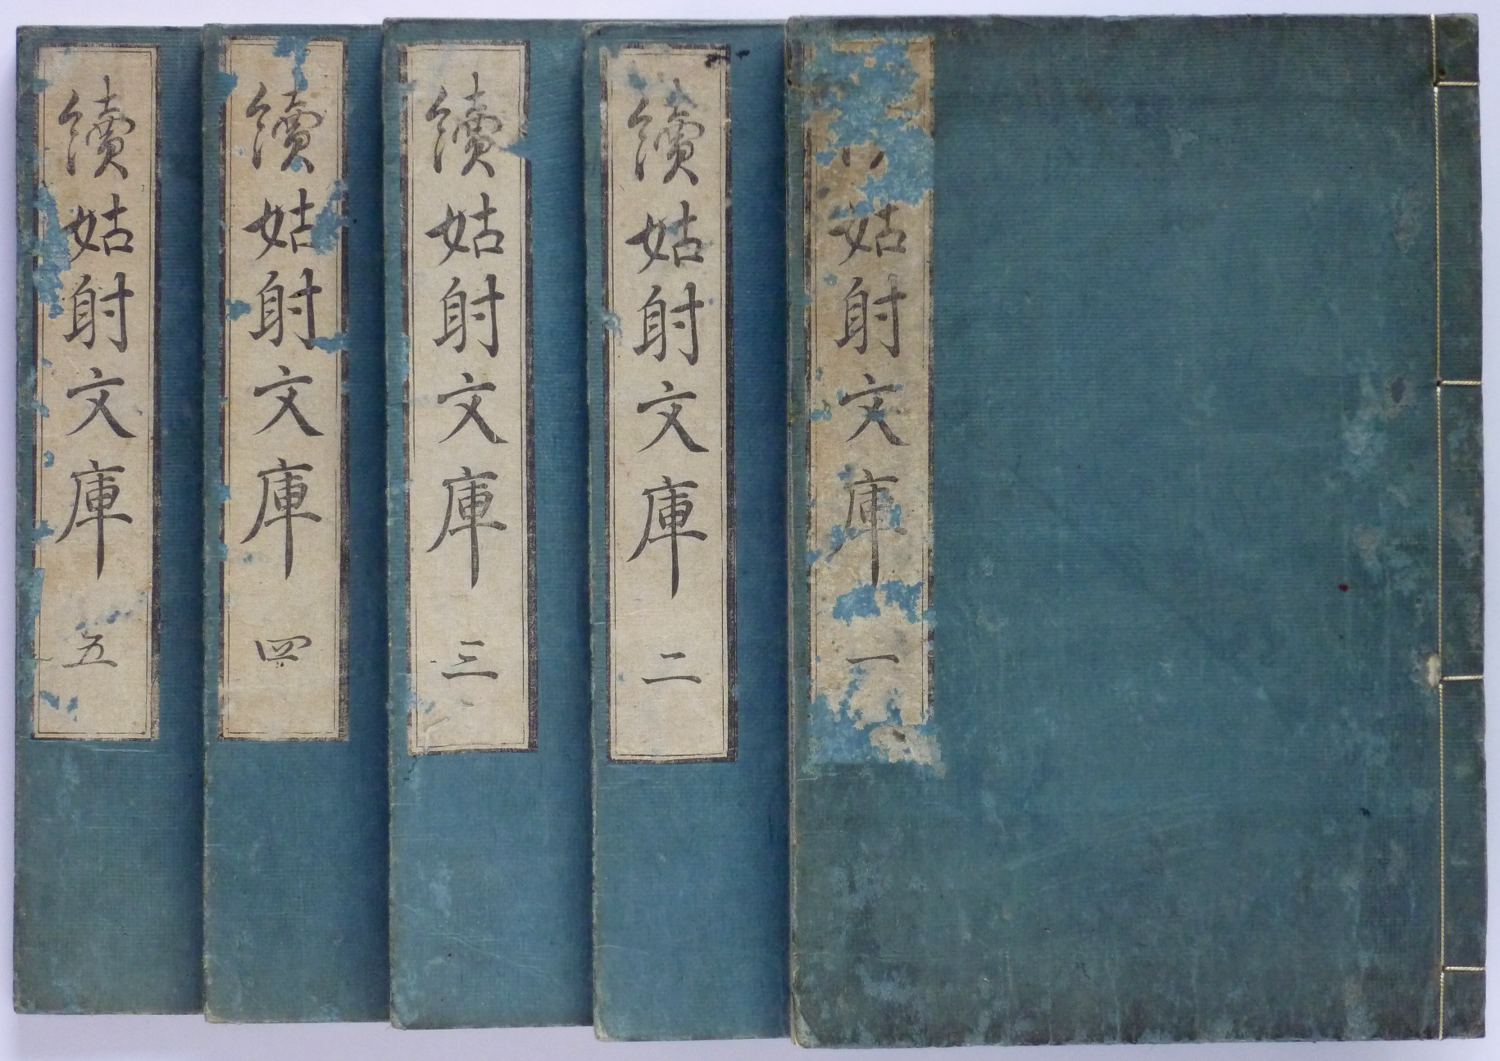 姑射文庫 一
續姑射文庫 二
續姑射文庫 三
續姑射文庫 四
續姑射文庫 五